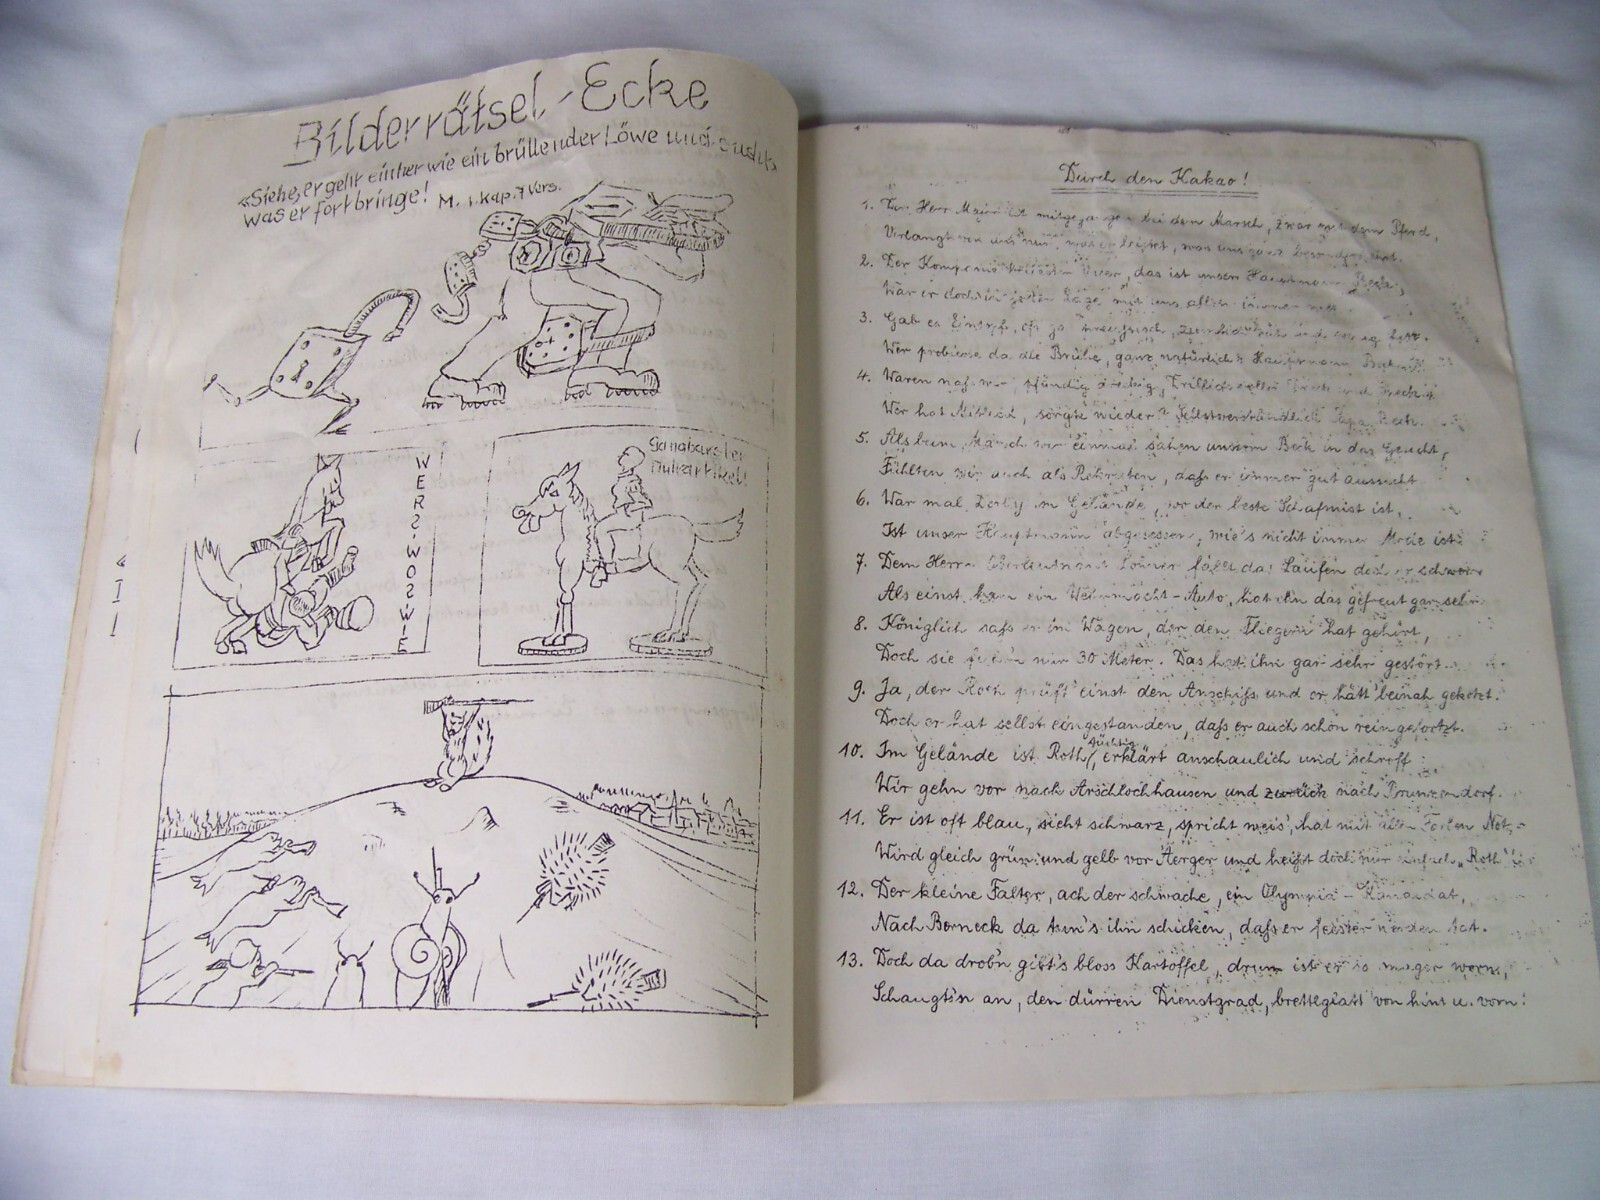 Bilderrätsel-Ecke
«Siehe, er geht einher wie ein brüllender Löwe und
was er fortbringe! M. 1. Kap. 7 Vers.
WER Z-WOS WIE
Durch den Kakao!
1. Herr mitgegangen bei dem Marsch, zwar mit dem Pferd,
Verlangt von uns nur, was er leistet, was uns ganz
2. Der Kompanie Vater, das ist unser Hauptmann Beck,
War er doch in jeder Lage mit uns allen immer
3. Gab es Eintopf, oft
Wer probierte da die Brühe, ganz natürlich: Hauptmann Beck.
4. Waren nass wir, pfundig dreckig, Drillich voller Dreck und
Wer hat Mitleid, sorgte wieder? Selbstverständlich Papa Beck.
5. Als beim Marsch wir einmal sahen unserm Beck in das Gesicht,
Fühlten wir auch als Rekruten, dass er immer gut aussicht.
6. War mal Derby im Gelände, wo der beste Schafmist ist,
Ist unser Hauptmann abgesessen, wie's nicht immer Mode ist.
7. Dem Herrn Oberleutnant fällt das Laufen doch so schwer
Als einst kam ein Wehrmacht-Auto, hat ihn das gefreut gar sehr.
8. Königlich sass er im Wagen, der den Fliegern hat gehört,
Doch sie fuhr'n nur 30 Meter. Das hat ihn gar sehr gestört.
9. Ja, der Roth prüft einst den Anschiss und er hätt' beinah gekotzt.
Doch er hat selbst eingestanden, dass er auch schon reingerotzt.
10. Im Gelände ist Roth tüchtig, erklärt anschaulich und schroff:
Wir gehn vor nach Arschlochhausen und zurück nach Brunzendorf.
11. Er ist oft blau, sieht schwarz, spricht weis', hat mit allen Farben Not,-
Wird gleich grün und gelb vor Aerger und heisst doch nur einfach "Roth"
12. Der kleine Falter, ach der schwache, ein Olympia-Kanandat,
Nach Berneck da tun's ihn schicken, dass er feister werden tat.
13. Doch da drob'n gibt's bloss Kartoffel, drum ist er so mager worn,
Schaugt's'n an, den dürren Dienstgrad, brettlglatt von hint u. vorn!